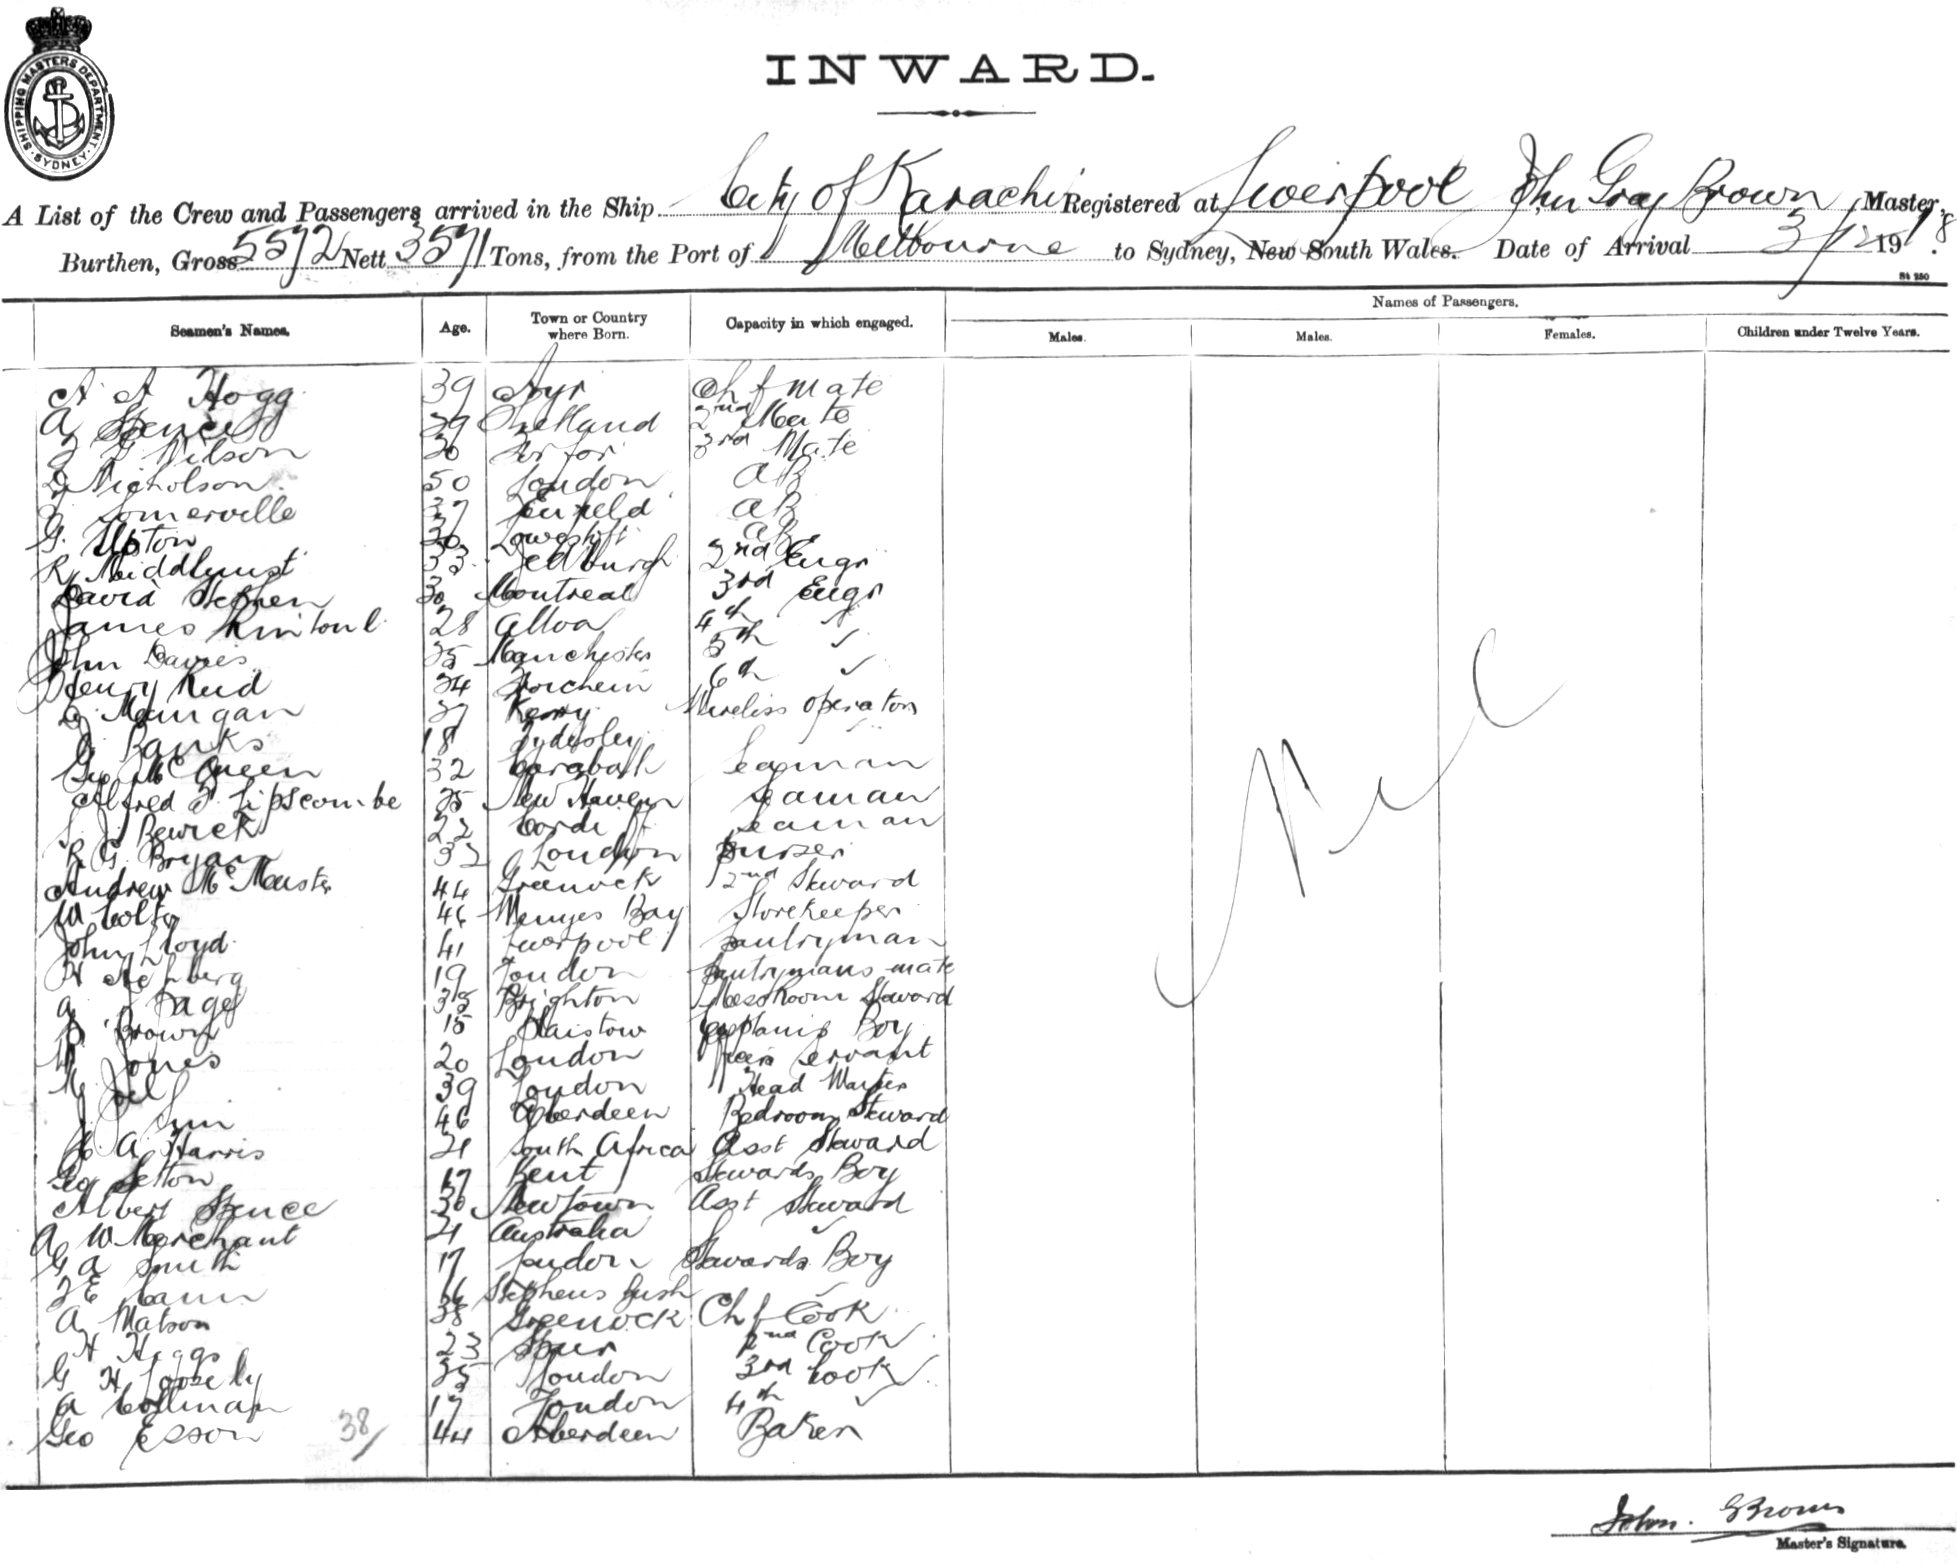 SHIPPING MASTERS DEPARTMENT SYDNEY
INWARD.
A List of the Crew and Passengers arrived in the Ship City of Karachi Registered at Liverpool John Gray Brown Master,
Burthen, Gross 5572 Nett 3571 Tons, from the Port of Melbourne to Sydney, New South Wales. Date of Arrival 3/12 1918.
St 250
Seamen's Names. Age. Town or Country where Born. Capacity in which engaged. Names of Passengers.
Males. Males. Females. Children under Twelve Years.
A A Hogg 39 Ayr Chf mate
A Spence 39 Shetland 2nd Mate
Wilson 30 Forfar 3rd Mate
Nicholson 50 London AB
Somerville 37 Enfield AB
G. Upton 30 Lowestoft AB
R Middlehurst 33 Jedburgh 2nd Engr
David Stephen 30 Montreal 3rd Engr
James Rintoul 28 Alloa 4th ✓
John Davies 35 Manchester 5th ✓
Henry Reid 34 6th ✓
Mangan 37 Kerry Wireless operator
Banks 18 Tydesley
Geo McQueen 32 Seaman
Alfred F. Lipscombe 35 New Haven Seaman
J. Bewick 22 Cardiff Seaman
R G. Bryan 32 London Purser
Andrew McMaster 44 Greenock 2nd Steward
W Colty 46 Menzies Bay Storekeeper
John Lloyd 41 Liverpool Pantryman
H 19 London Pantrymans mate
A Page 35 Brighton Messroom Steward
Brown 15 Plaistow Captains Boy
W Jones 20 London Officers Servant
M Joel 39 London Head Waiter
J. Sim 46 Aberdeen Bedroom Steward
A. Harris 21 South Africa Asst Steward
Geo Setton 17 Kent Stewards Boy
Albert Spence 30 Newtown Asst Steward
A W Merchant 21 Australia ✓
G A Smith 17 London Stewards Boy
F E Cann 16 Stephens Bush ✓
A Matson 38 Greenock Chf Cook
H Higgs 23 2nd Cook
G H Loosely 35 London 3rd Cook
A Collman 17 London 4th ✓
Geo Esson 44 Aberdeen Baker
38/
Nil
John. G Brown
Master's Signature.